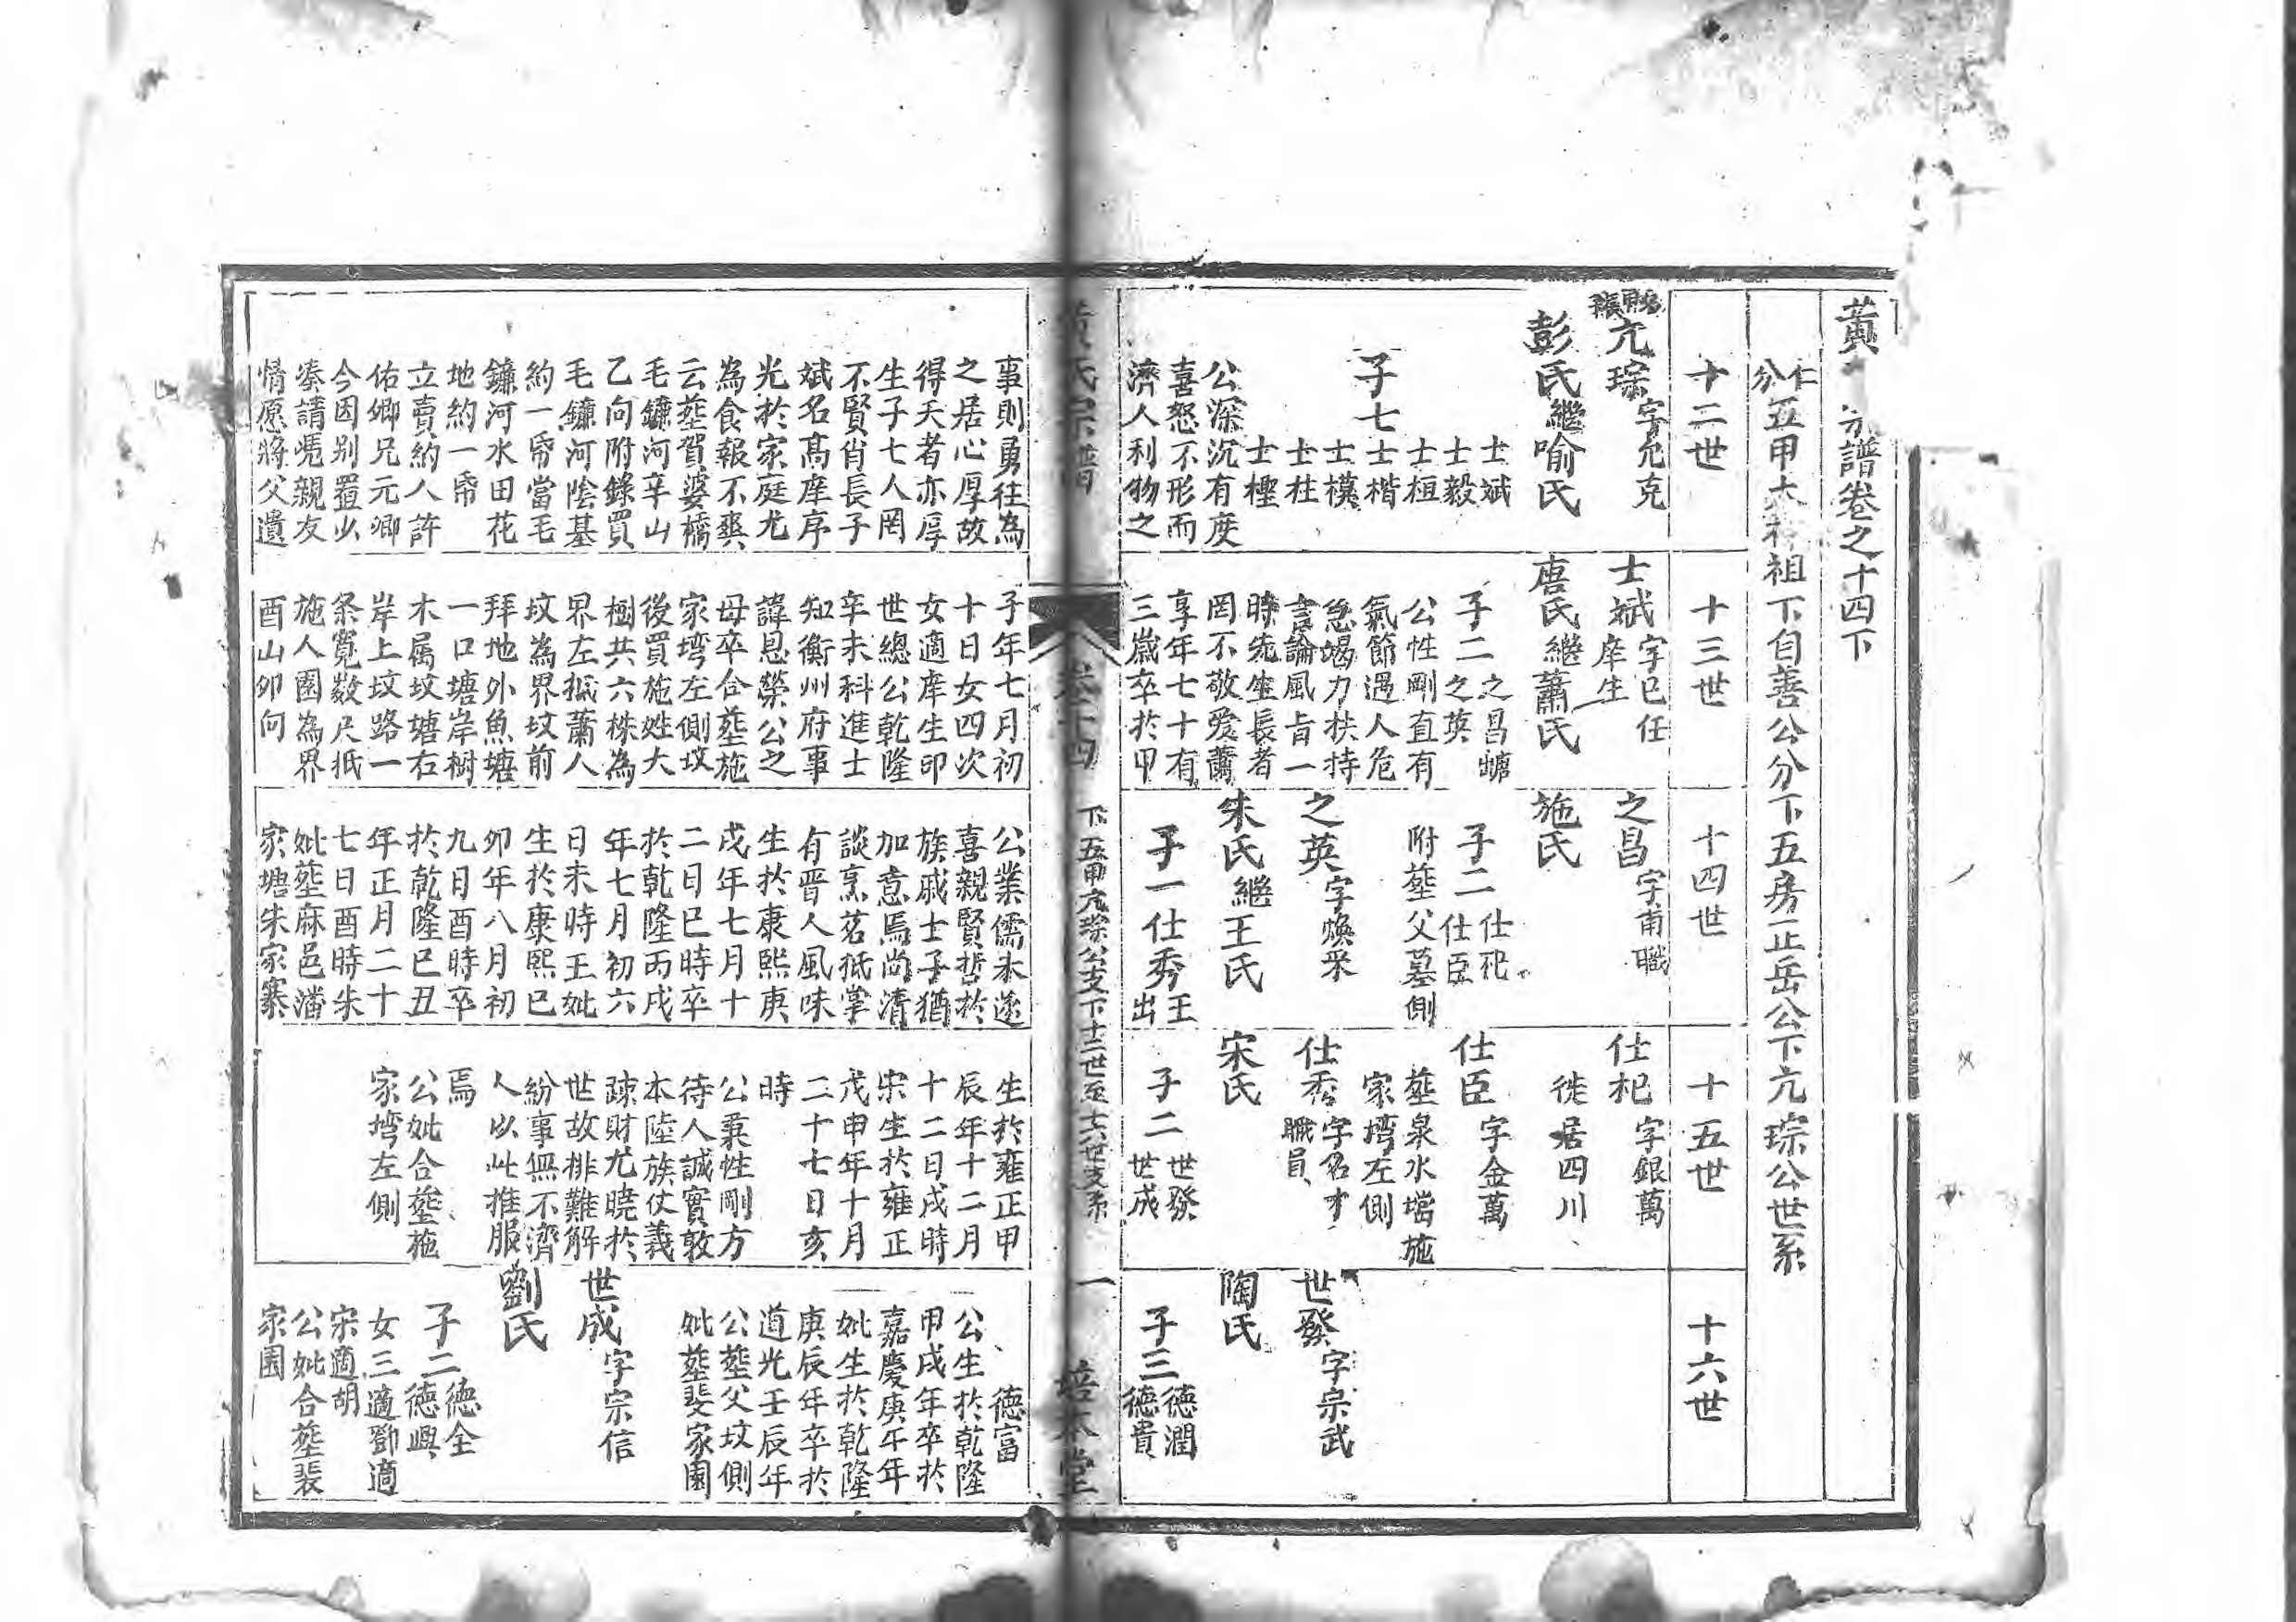 黃 宗譜卷之十四下
仁分五甲大 祖下自善公分下五房正岳公下亢琮公世系
十二世
亢琮字允克
彭氏繼喻氏
子七
士斌
士毅
士桓
士楷
士模
士柱
士樫
公深沉有度
喜怒不形而
濟人利物之
十三世
士斌字巳任
庠生
唐氏繼蕭氏
子二
之昌螗
之英
公性剛直有
氣節遇人危
急竭力扶持
言論風旨一
時先生長者
罔不敬愛蕭
享年七十有
三歲卒於甲
十四世
之昌字甫職
施氏
子二
仕杞
仕臣
附塟父墓側
之英字煥采
朱氏繼王氏
子一仕秀王出
十五世
仕杞字銀萬
徙居四川
仕臣字金萬
塟泉水壋施
家塆左側
仕秀字名才
職員
宋氏
子二
世發
世成
十六世
世發字宗武
陶氏
子三
德潤
德貴
黃氏宗譜
卷十四
下五甲亢琮公支下十二世至十六世支系
一
培本堂
事則勇往為
之居心厚故
得天者亦厚
生子七人罔
不賢肖長子
斌名髙庠序
光於家庭尤
為食報不爽
云塟賀婆橋
毛鐮河辛山
乙向附錄買
毛鐮河陰基
約一帋當毛
鐮河水田花
地約一帋
立賣約人許
佑卿兄元卿
今因别置出
湊請凭親友
情愿將父遺
子年七月初
十日女四次
女適庠生邱
世總公乾隆
辛未科進士
知衡州府事
諱恩榮公之
母卒合塟施
家塆左側坟
後買施姓大
樹共六株為
界左抵蕭人
坟為界坟前
拜地外魚塘
一口塘岸樹
木属坟塘右
岸上坟路一
条寬数尺抵
施人園為界
酉山卯向
公業儒未遂
喜親賢哲於
族戚士子猶
加意焉尚清
談烹茗抵掌
有晋人風味
生於康熙庚
戌年七月十
二日巳時卒
於乾隆丙戌
年七月初六
日未時王妣
生於康熙巳
卯年八月初
九日酉時卒
於乾隆巳丑
年正月二十
七日酉時朱
妣塟麻邑潘
家塘朱家寨
生於雍正甲
辰年十二月
十二日戌時
宋生於雍正
戊申年十月
二十七日亥
時
公秉性剛方
待人誠實敦
本陸族仗義
疎財尤曉於
世故排難解
紛事無不濟
人以此推服
焉
公妣合塟施
家塆左側
德富
公生於乾隆
甲戌年卒於
嘉慶庚午年
妣生於乾隆
庚辰年卒於
道光壬辰年
公塟父坟側
妣塟斐家園
世成字宗信
劉氏
子二
德全
德興
女三適鄧適
宋適胡
公妣合塟裴
家園